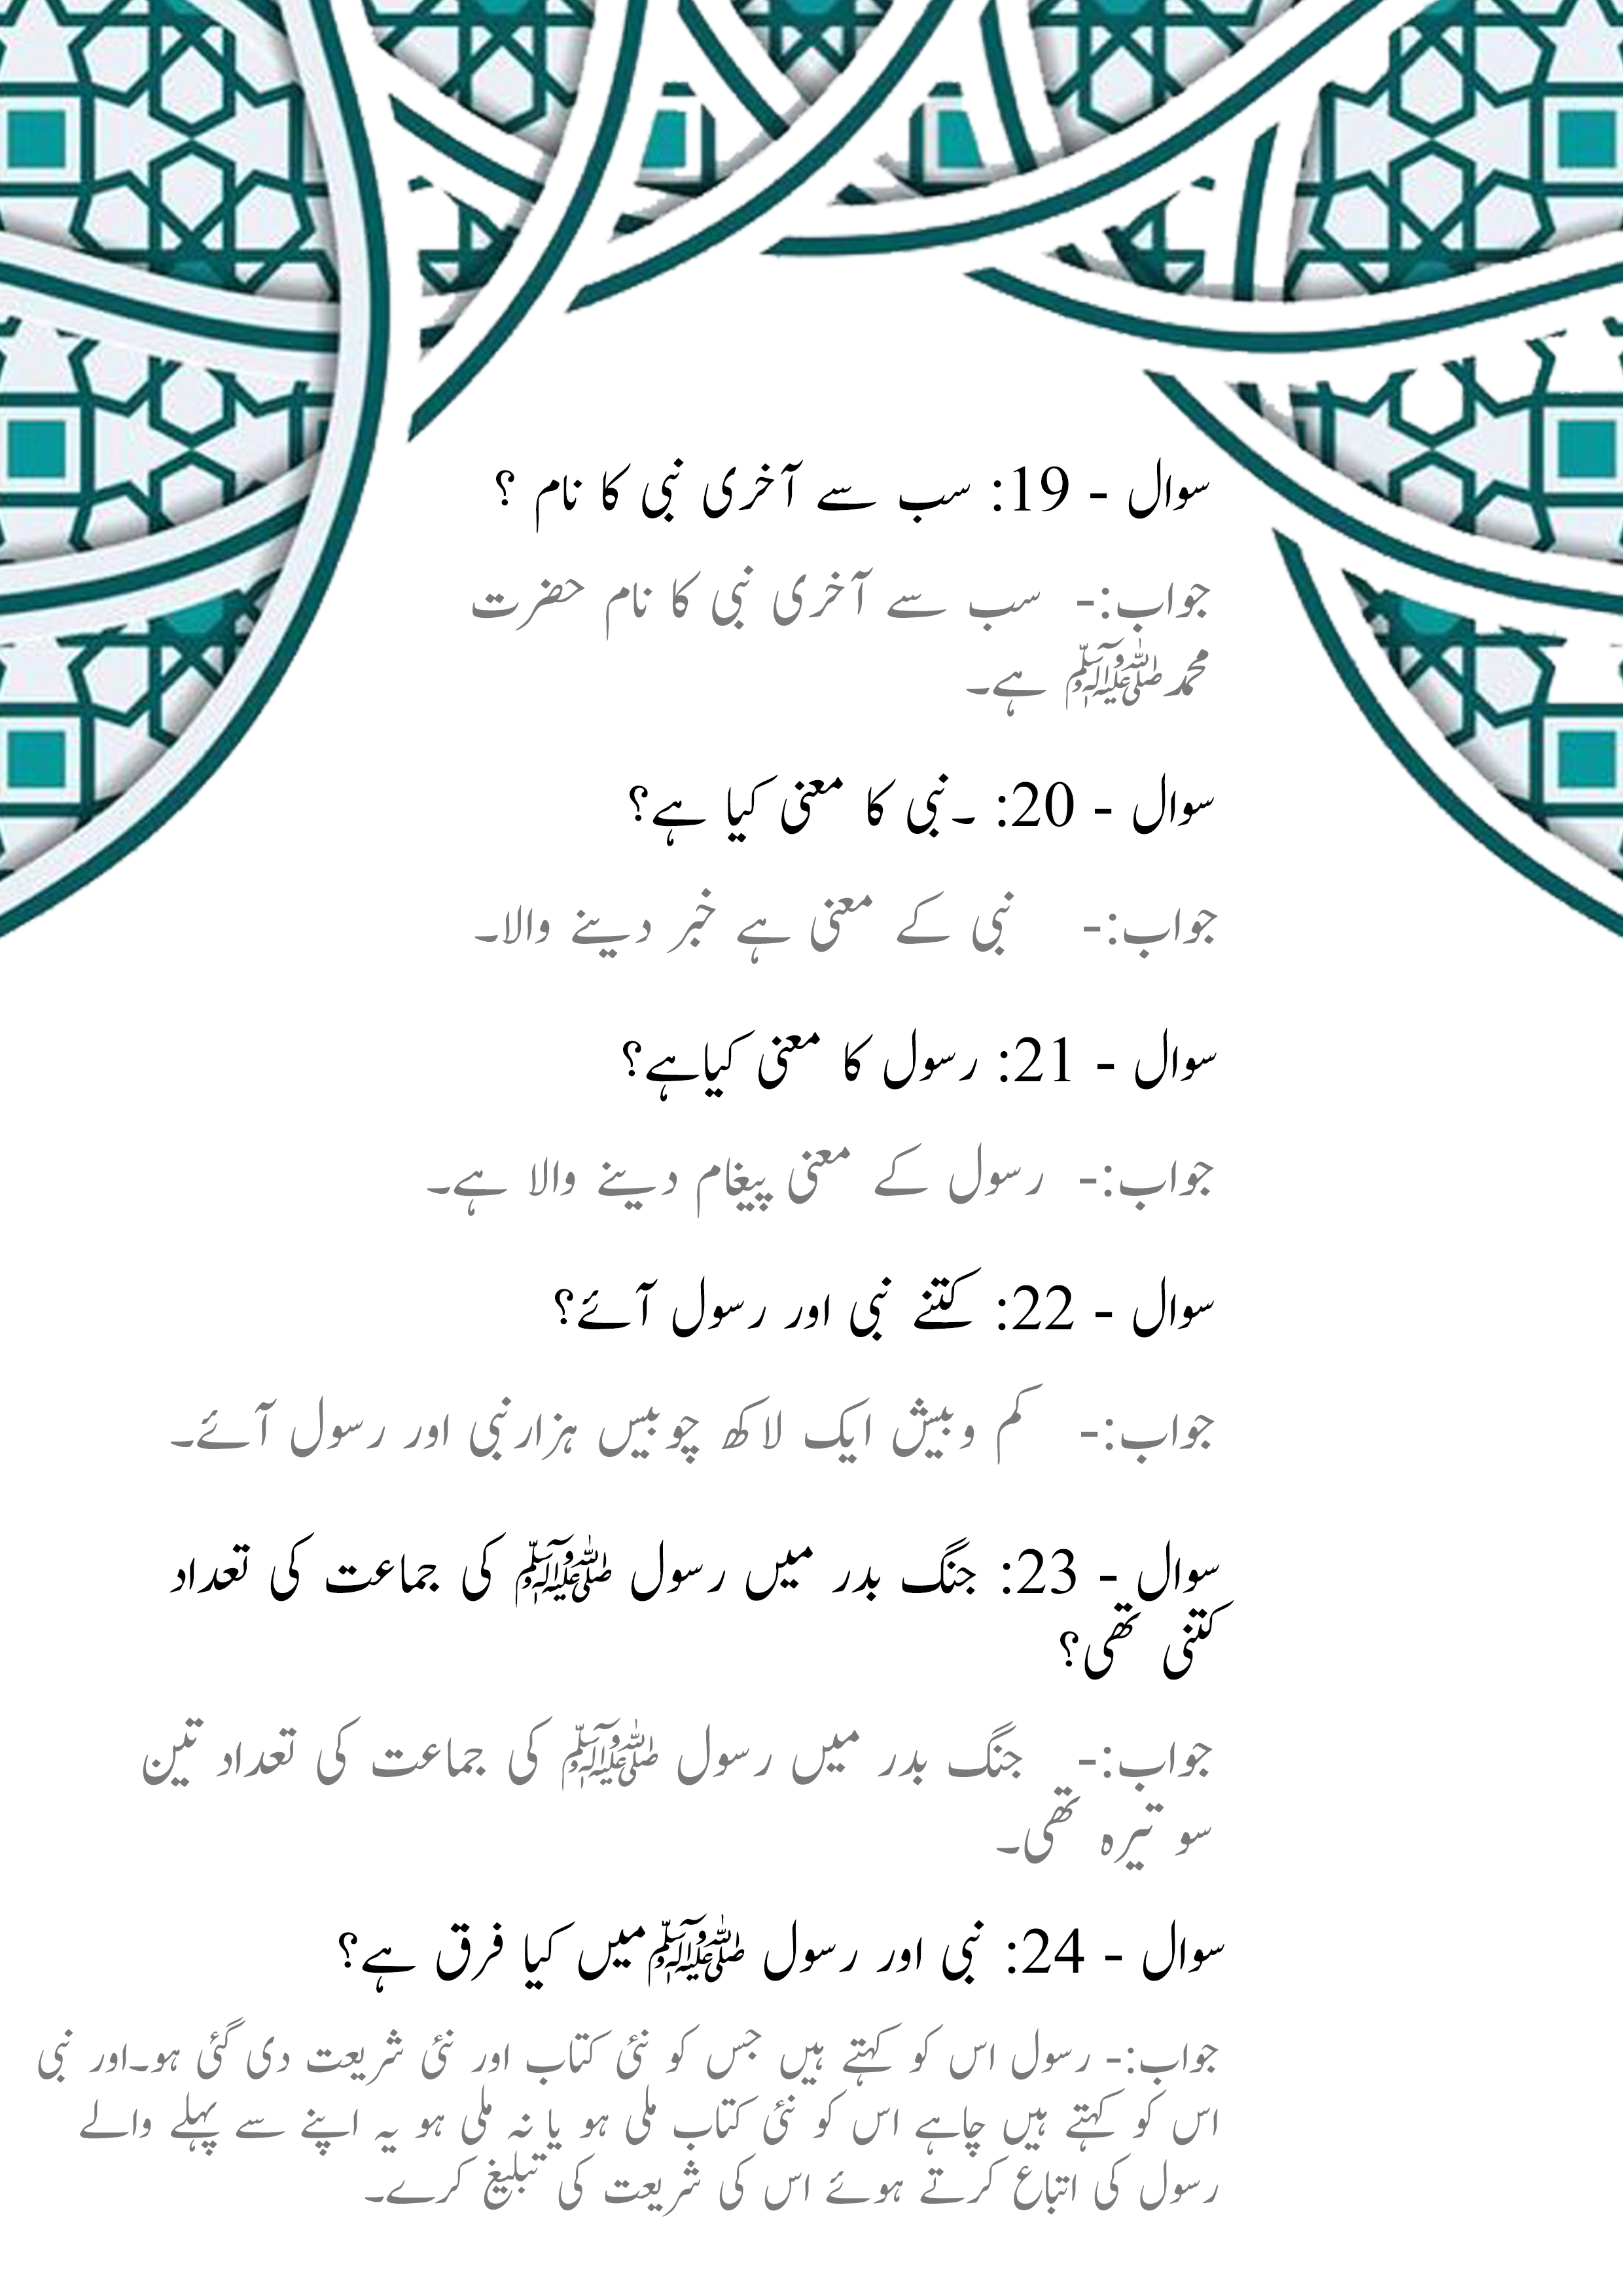 سوال - 19: سب سے آخری نبی کا نام ؟
جواب:- سب سے آخری نبی کا نام حضرت
محمد ﷺ ہے۔
سوال - 20: ۔نبی کا معنی کیا ہے؟
جواب:- نبی کے معنی ہے خبر دینے والا۔
سوال - 21: رسول کا معنی کیاہے؟
جواب:- رسول کے معنی پیغام دینے والا ہے۔
سوال - 22: کتنے نبی اور رسول آئے؟
جواب:- کم وبیش ایک لاکھ چوبیس ہزارنبی اور رسول آئے۔
سوال - 23: جنگ بدر میں رسول ﷺ کی جماعت کی تعداد
کتنی تھی؟
جواب:- جنگ بدر میں رسول ﷺ کی جماعت کی تعداد تین
سو تیرہ تھی۔
سوال - 24: نبی اور رسول ﷺمیں کیا فرق ہے؟
جواب:- رسول اس کو کہتے ہیں جس کو نئی کتاب اور نئی شریعت دی گئی ہو۔اور نبی
اس کو کہتے ہیں چاہے اس کو نئی کتاب ملی ہو یا نہ ملی ہو یہ اپنے سے پہلے والے
رسول کی اتباع کرتے ہوئے اس کی شریعت کی تبلیغ کرے۔